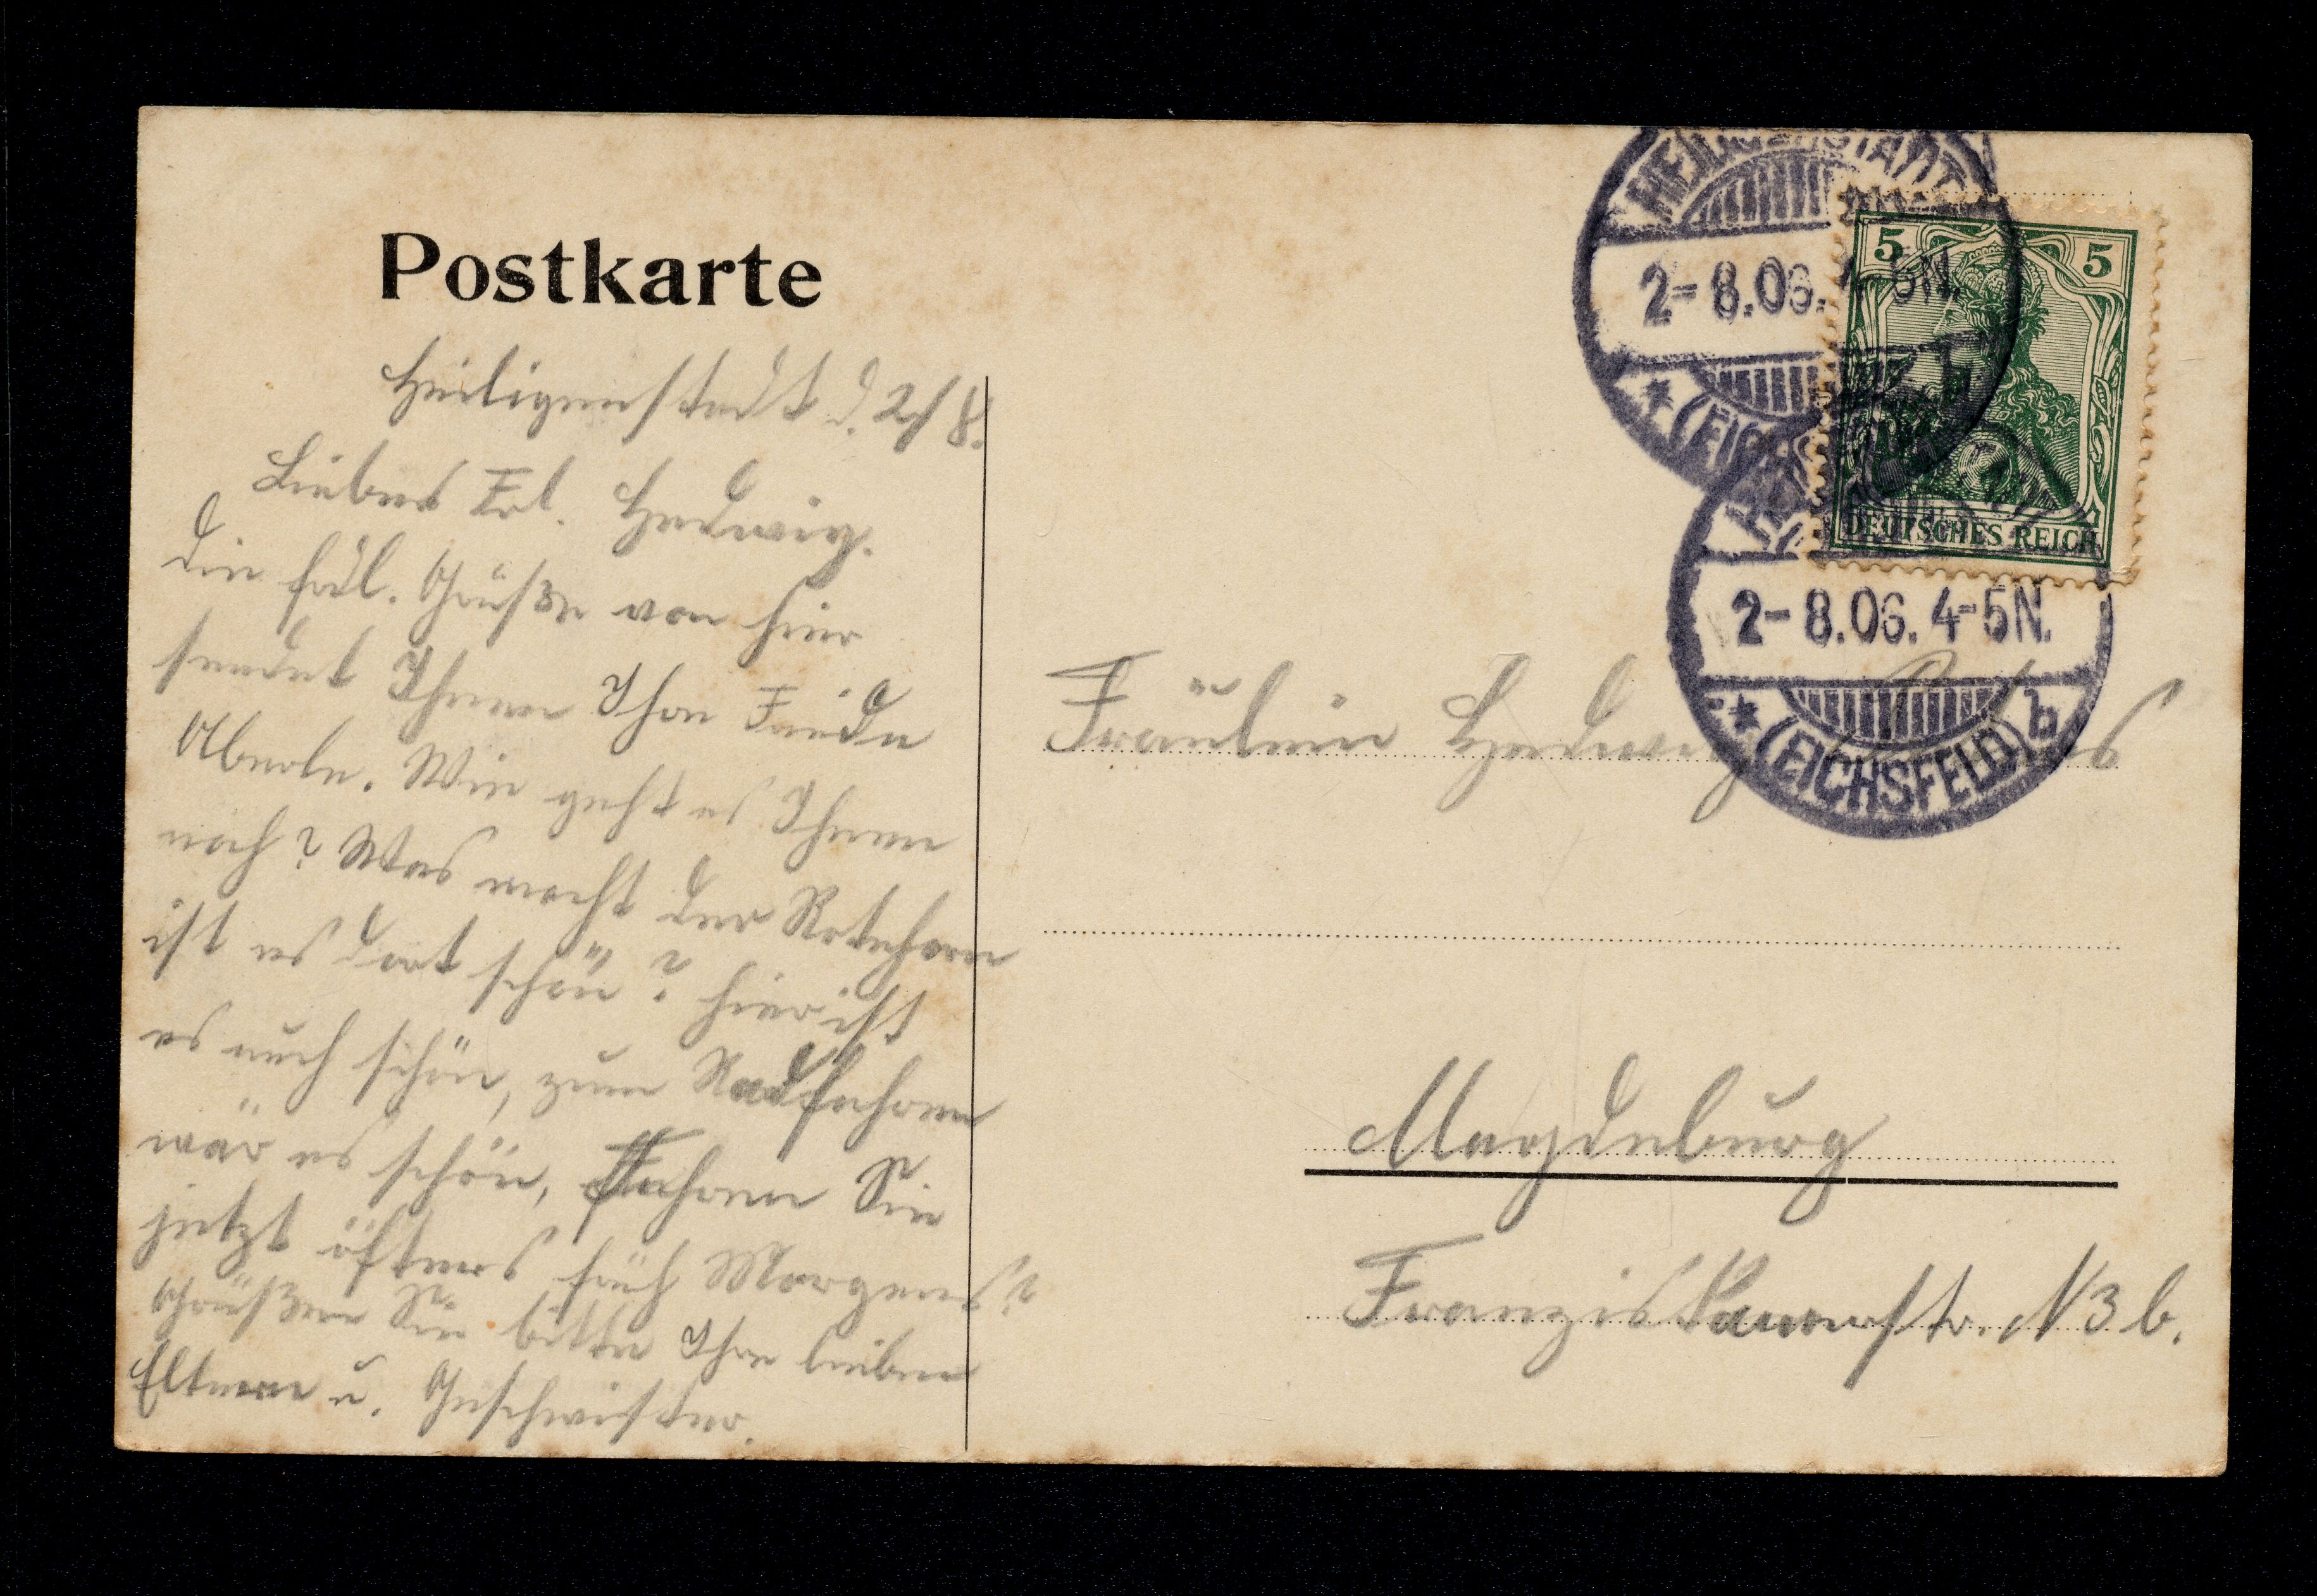 Postkarte
Heiligenstadt d. 2/8.
Liebes Frl. Hedwig.
Die frdl. Grüße von hier
sendet Ihnen Ihre Frieda
Aberle. Wie geht es Ihnen
noch? Was macht der Rotehorn
ist es dort schön? hier ist
es auch schön, zum Radfahren
wär es schön, Fahren Sie
jetzt öfters früh Morgens?
Grüßen Sie bitte Ihre lieben
Eltern u. Geschwister.
HEILIGENSTADT
2-8.06. 4-5N.
* (EICHSFELD) b
5 5
DEUTSCHES REICH
2-8.06. 4-5N.
* (EICHSFELD) b
Fräulein Hedwig
Magdeburg
Franziskanerstr. N 3 b.